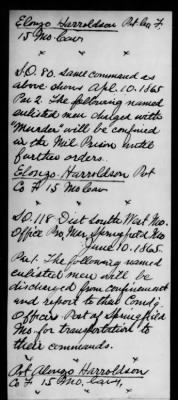 Elonzo Harroldson Pvt Co F.
15 Mo Cav.
S.O. 80. Same command as
above shows Apl. 10. 1865
Par 2. The following named
enlisted men charged with
"Murder" will be confined
in the Mil Prison until
further orders.
Elonzo Harroldson Pvt
Co F 15 Mo Cav
S.O. 118 Dist South West Mo.
Office Pro. Mar. Springfield Mo
June 10. 1865.
Par 1. The following named
enlisted men will be
discharged from confinement
and report to the Comd'g
Officer Post of Springfield
Mo. for transportation to
their commands.
Pvt Alonzo Harroldson
Co F 15 Mo. Cav.